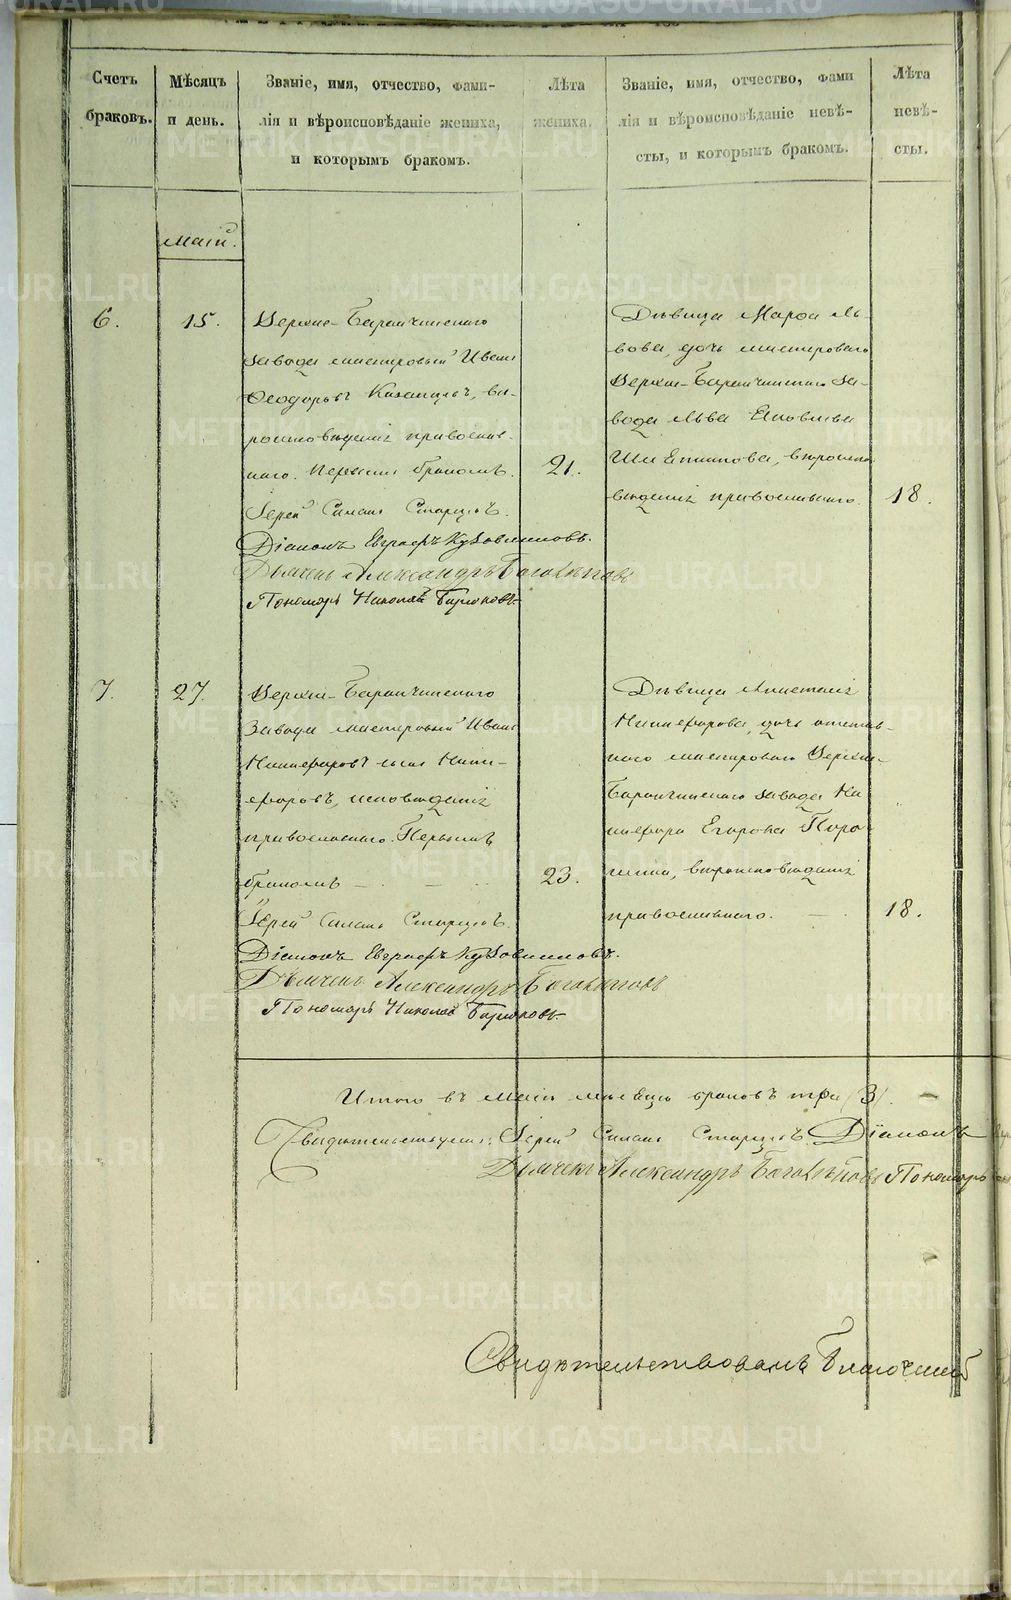 Счетъ браковъ.
Мѣсяцъ и день.
Званіе, имя, отчество, фами-
лія и вѣроисповѣданіе жениха,
и которымъ бракомъ.
Лѣта жениха.
Званіе, имя, отчество, фами
лія и вѣроисповѣданіе невѣ-
сты, и которымъ бракомъ.
Лѣта невѣ-
сты.
Маій.
6.
15.
Верхне-Баранчинскаго
завода мастеровый Иванъ
Ѳеодоровъ Казанцевъ, вѣ-
роисповѣданія православ-
наго. Первымъ бракомъ.
Іерей Симеонъ Старцевъ.
Діаконъ Евграфъ Кудовшиковъ.
Дьячекъ Александръ Боголѣповъ
Пономарь Николай Бирюковъ.
21.
Дѣвица Марѳа Ль-
вова, дочь мастероваго
Верхне-Баранчинскаго за-
вода Льва Яковлева
вѣроиспо
вѣданія православнаго
18.
7.
27.
Верхне-Баранчинскаго
Завода мастеровый Иванъ
Никифоровъ сынъ Ники-
форовъ, исповѣданія
православнаго. Первымъ
бракомъ
Іерей Симеонъ Старцевъ.
Діаконъ Евграфъ Кудовшиковъ.
Дьячекъ Александръ Боголѣповъ
Пономарь Николай Бирюковъ.
23.
Дѣвица Анастасія
Никифорова, дочь отстав-
наго мастероваго Верхне-
Баранчинскаго завода Ни
кифора Егорова Поро
шина, вѣроисповѣданія
православнаго.
18.
Итого въ Маіѣ мѣсяцѣ браковъ три (3).
Свидѣтельствуемъ: Іерей Симеонъ Старцевъ. Діаконъ
Дьячекъ Александръ Боголѣповъ Пономарь
Свидѣтельствовалъ Благочинный
METRIKI.GASO-URAL.RU